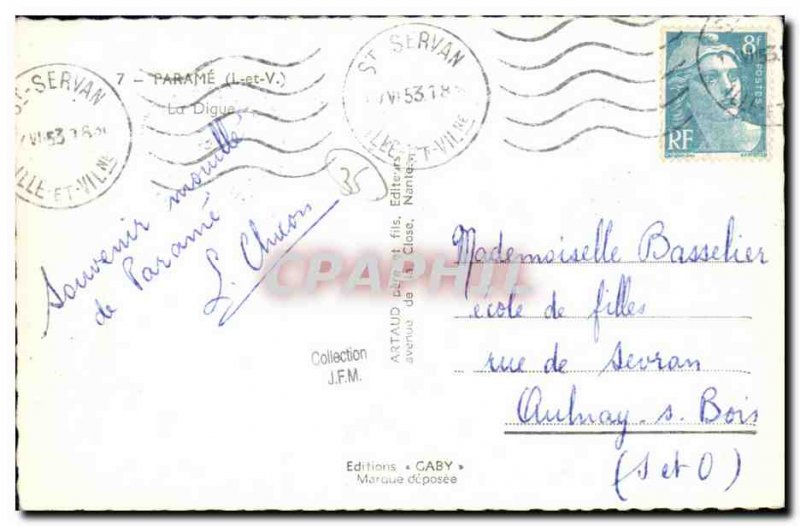 7 - PARAMÉ (I.-et-V.)
La Digue
ST-SERVAN
VI 53
ILLE-ET-VILNE
ST-SERVAN
VI-53.18
ILLE-ET-VILNE
8f
POSTES
RF
35
Souvenir mouillé
de Paramé
CPAPHIL
ARTAUD père et fils, Editeurs
avenue de la Close, Nantes
Mademoiselle Basselier
école de filles
rue de Sevran
Aulnay-s. Bois
(S et O)
Collection
J.F.M.
Editions « GABY »
Marque déposée